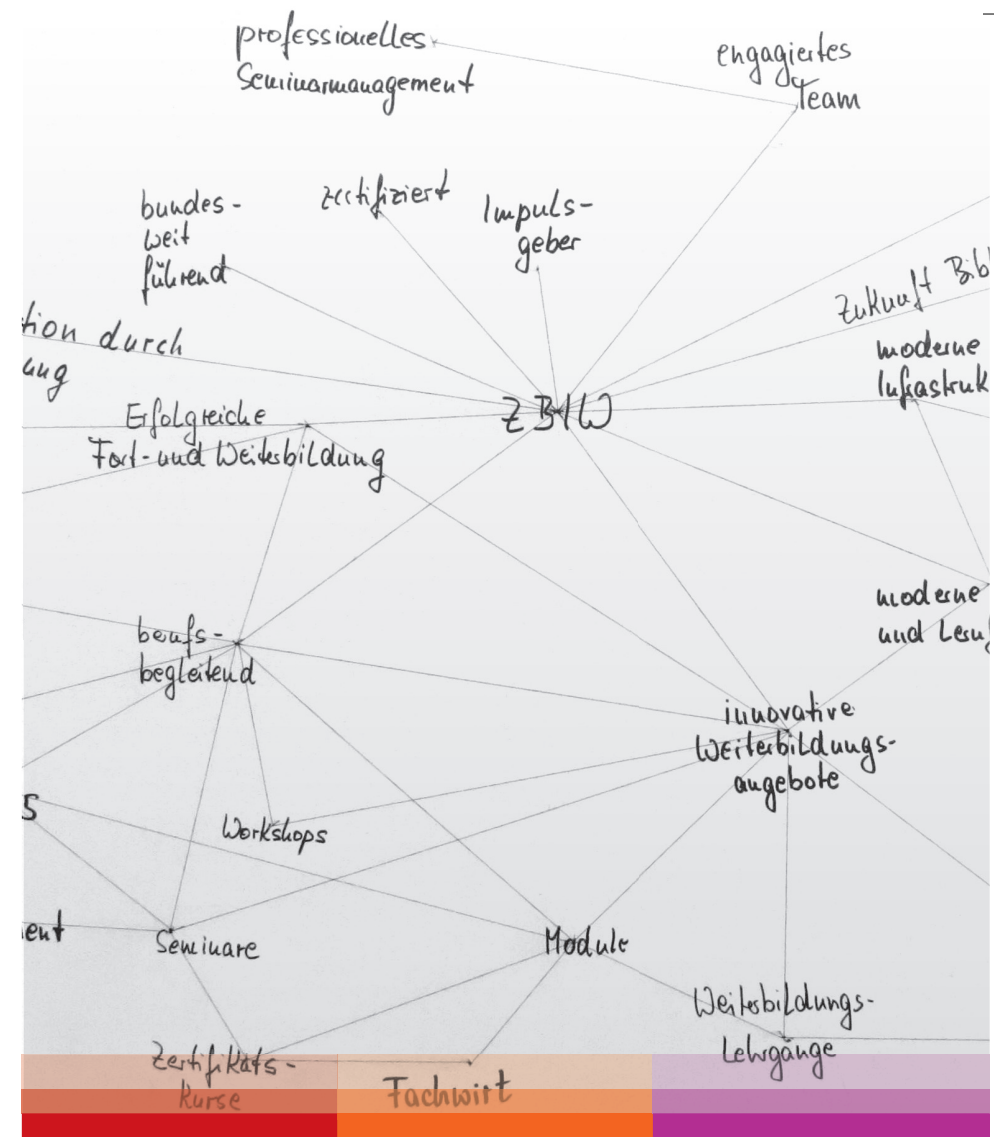 professionelles
Seminarmanagement
engagiertes
Team
bundes-
weit
führend
zertifiziert
Impuls-
geber
Zukunft Bib
tion durch
ung
moderne
Infrastruk
ZBIW
Erfolgreiche
Fort- und Weiterbildung
moderne
und Lern
berufs-
begleitend
innovative
Weiterbildungs-
angebote
s
Workshops
ent
Seminare
Module
Weiterbildungs-
Lehrgänge
Zertifikats-
Kurse
Fachwirt